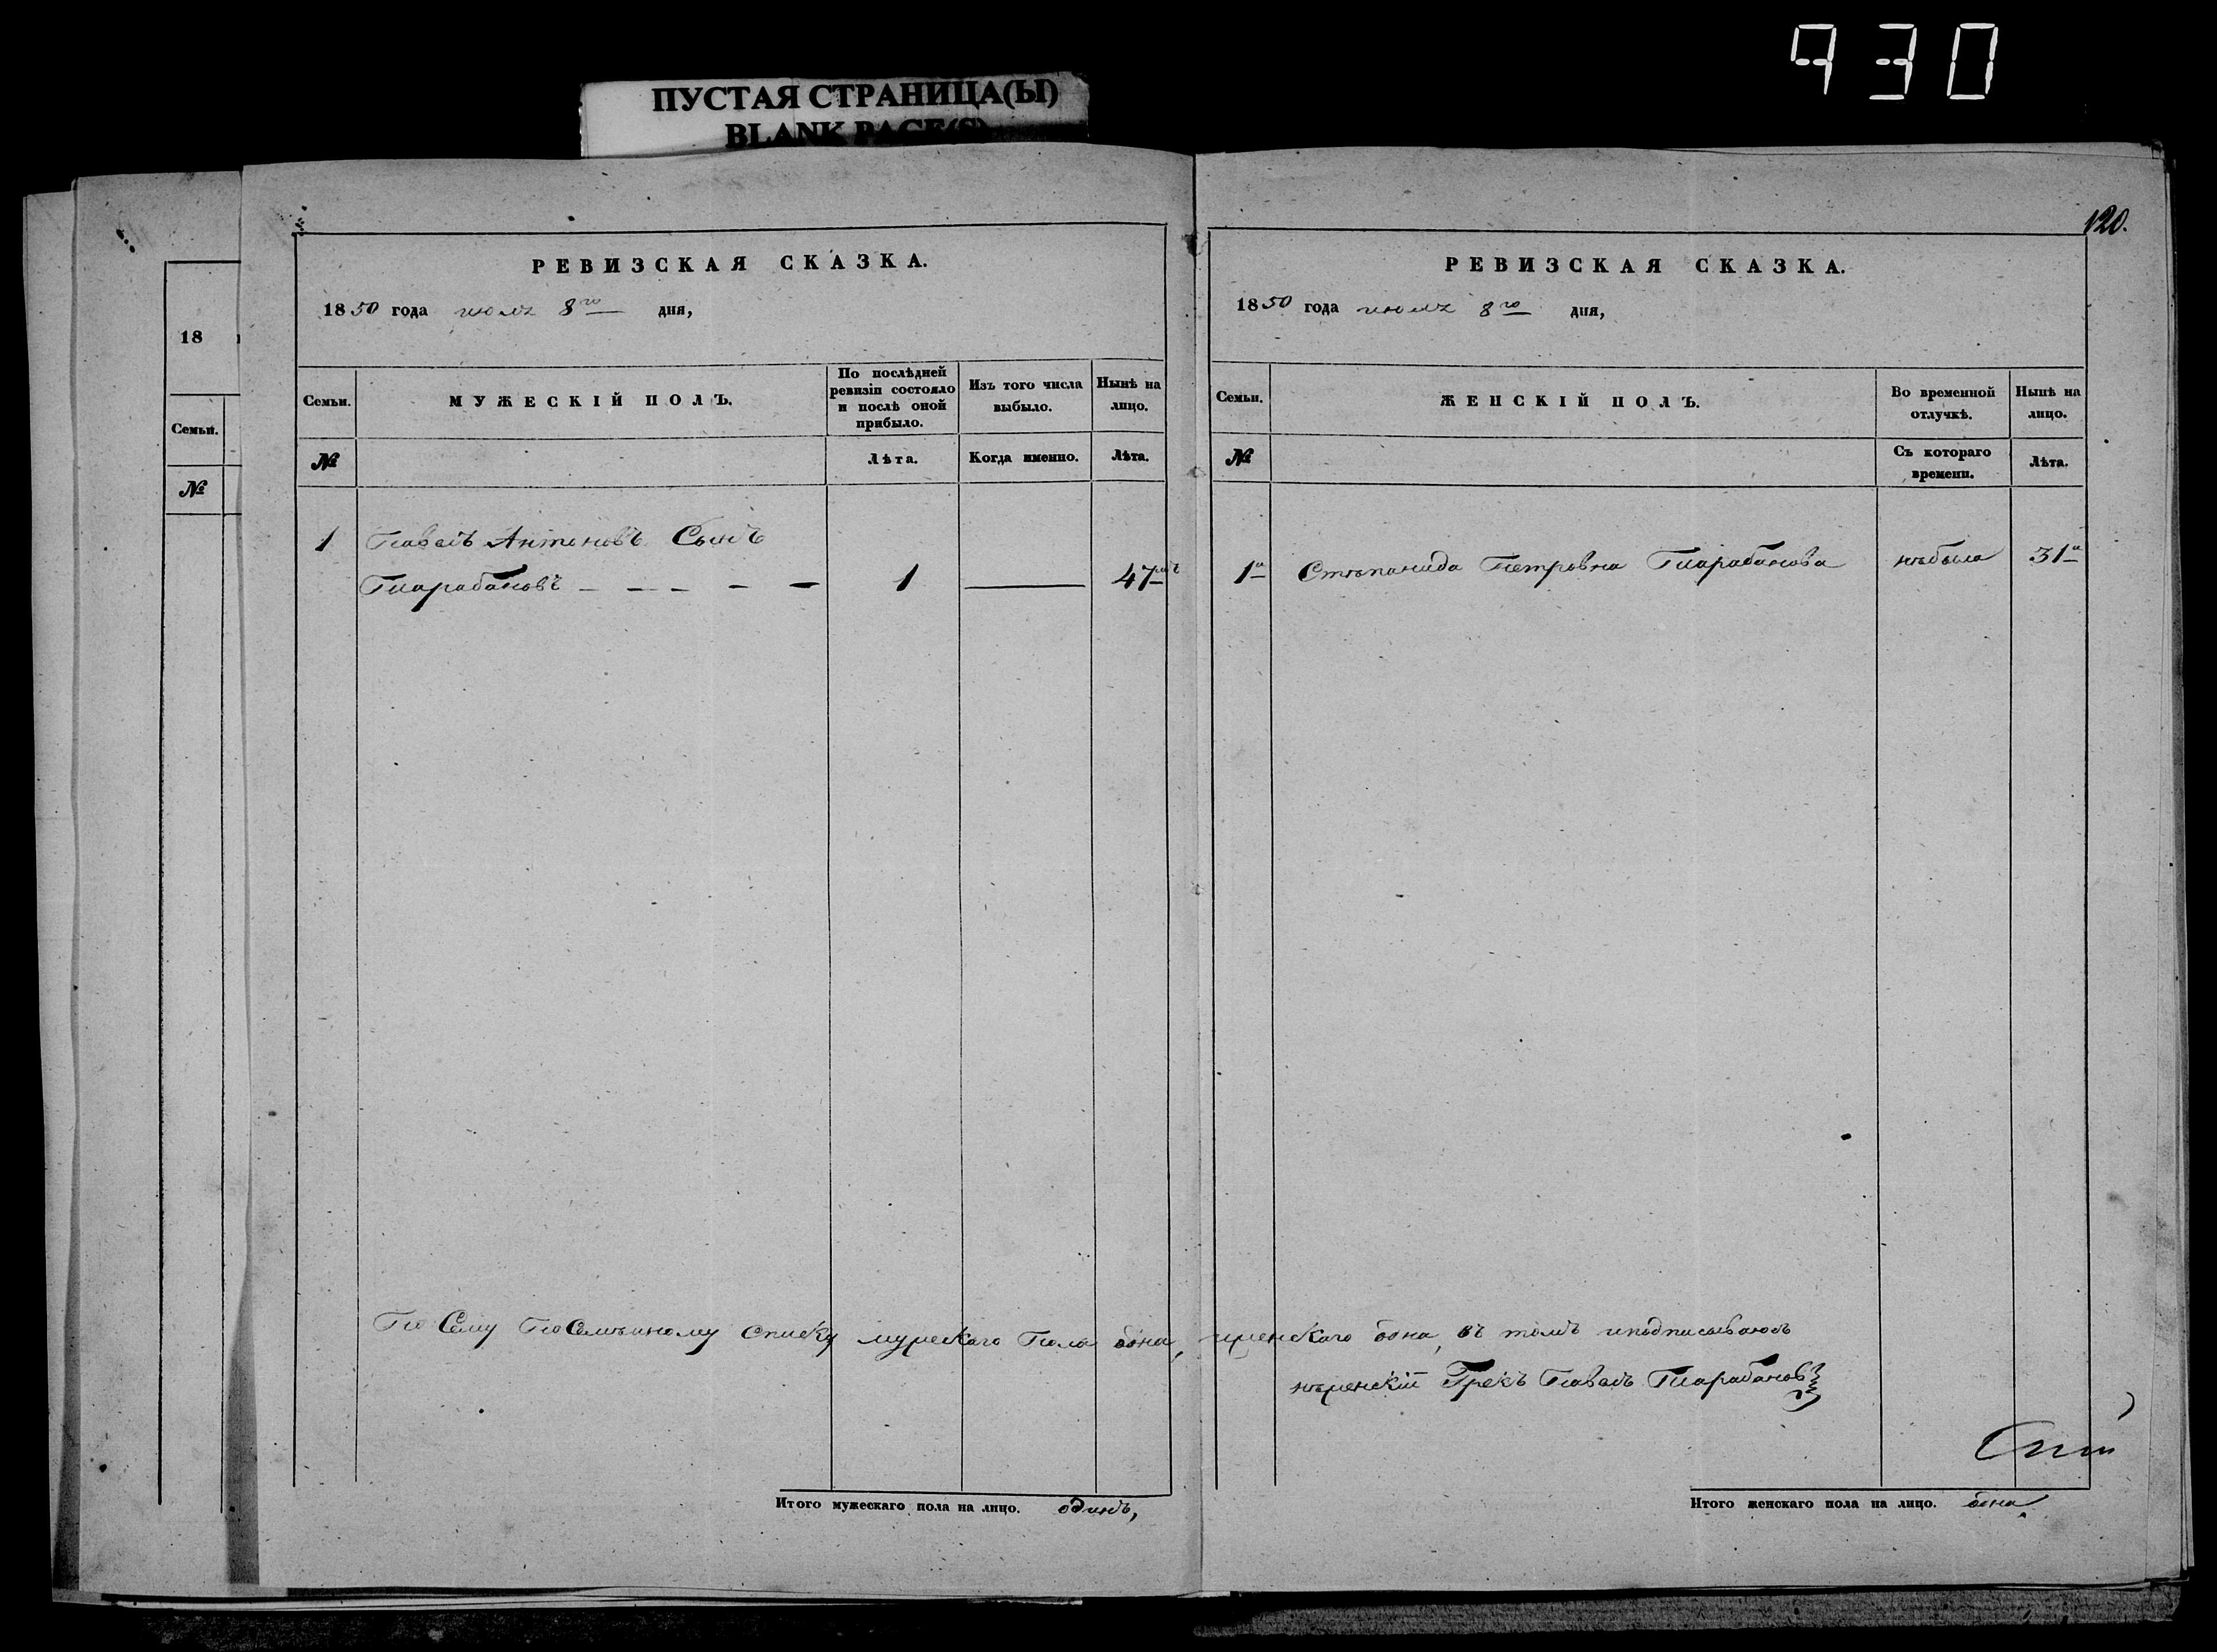 930
ПУСТАЯ СТРАНИЦА(Ы)
BLANK PAGE(S)
18
Семьи.
№
РЕВИЗСКАЯ СКАЗКА.
1850 года июля 8го дня,
Семьи.
МУЖЕСКІЙ ПОЛЪ.
По послѣдней ревизіи состояло и послѣ оной прибыло.
Изъ того числа выбыло.
Нынѣ на лицо.
№
Лѣта.
Когда именно.
Лѣта.
1 Павелъ Антоновъ Сынъ
Тарабановъ 1 47
По Сему Посемейному Списку мужескаго Пола одна,
Итого мужескаго пола на лицо. одинъ,
120.
РЕВИЗСКАЯ СКАЗКА.
1850 года июля 8го дня,
Семьи.
ЖЕНСКІЙ ПОЛЪ.
Во временной отлучкѣ.
Нынѣ на лицо.
№
Съ котораго времени.
Лѣта.
1а Степанида Петровна Тарабанова небыла 31а
женскаго одна, въ томъ иподписываюсь
нѣженскій Грекъ Павелъ Тарабановъ
Итого женскаго пола на лицо. одна